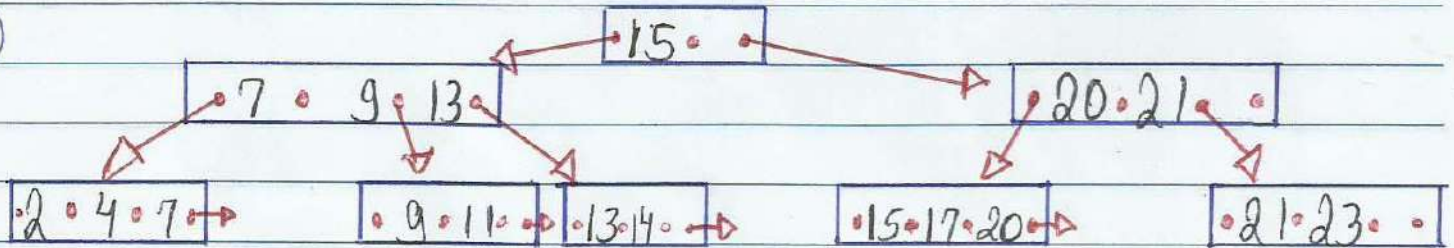 15
7 9 13 20 21
2 4 7 9 11 13 14 15 17 20 21 23